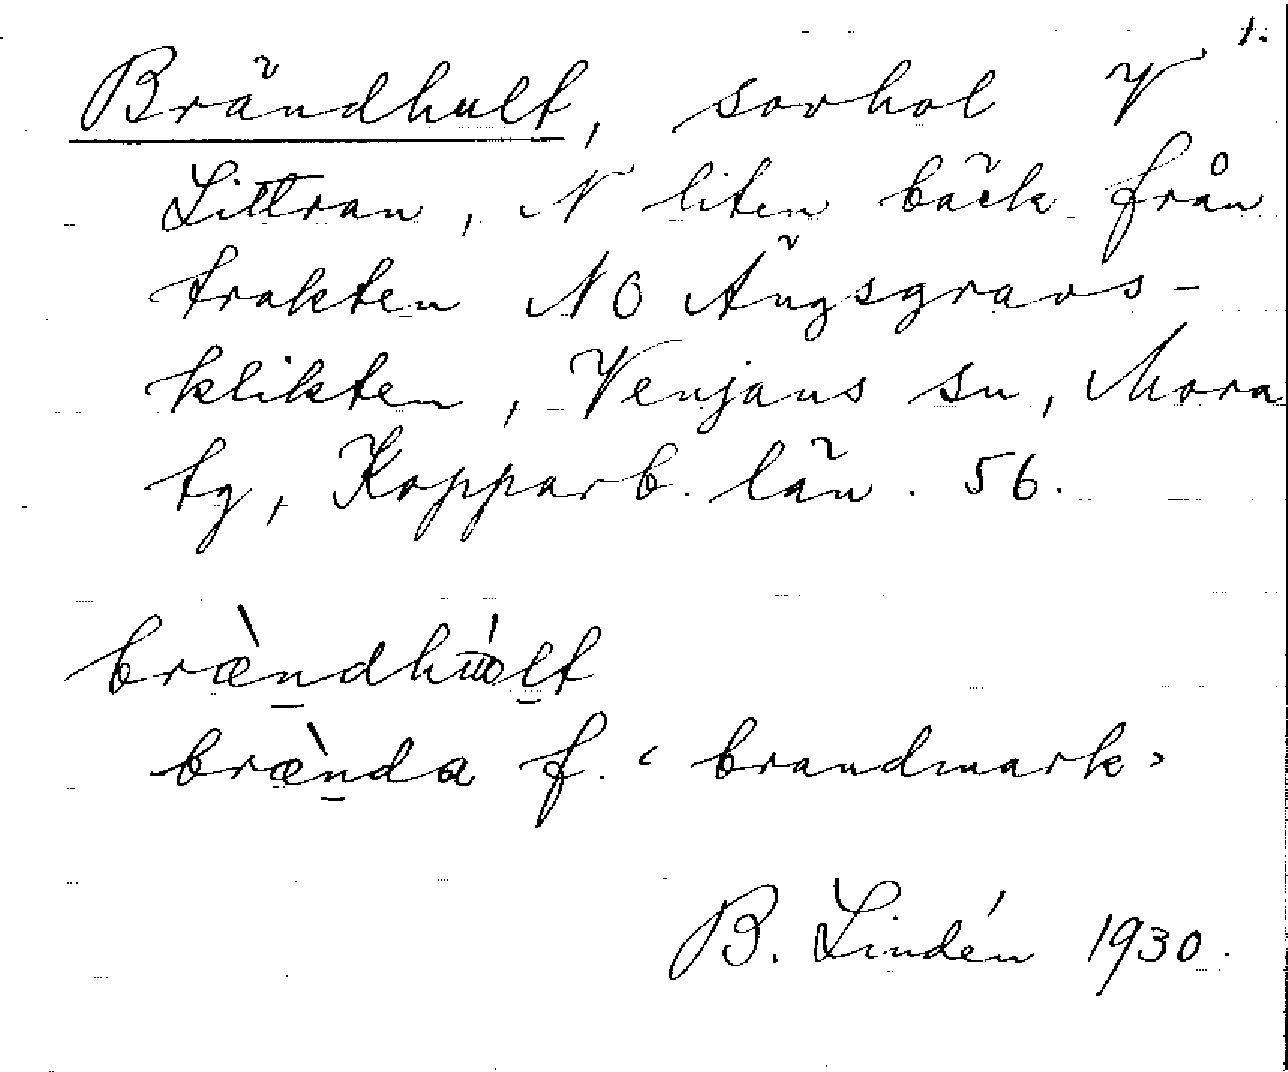 1.
Brändhult, sovhol V
Littran, N liten bäck från
trakten NO Ängsgravs-
klikten, Venjans sn, Mora
tg, Kopparb. län. 56.
bræ̀ndhult
bræ̀nda f. ‹ brandmark ›
B. Lindén 1930.